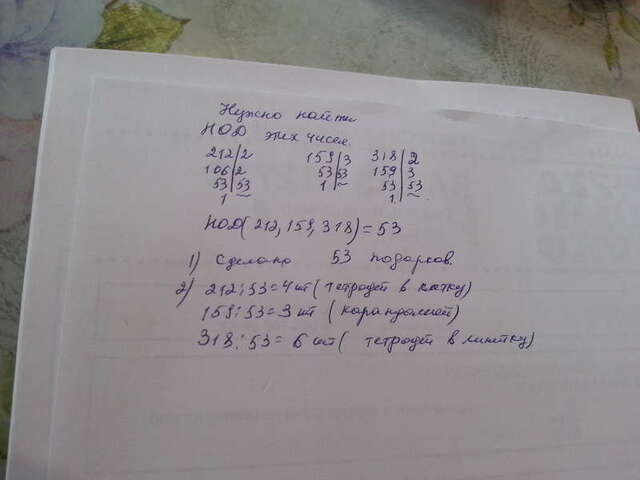 Нужно найти
НОД этих чисел.
212|2 159|3 318|2
106|2 53|53 159|3
53|53 1 53|53
1 1
НОД(212,159,318)=53
1) Сделано 53 подарков.
2) 212:53=4шт(тетрадей в клетку)
159:53=3шт (карандашей)
318:53=6шт( тетрадей в линейку)